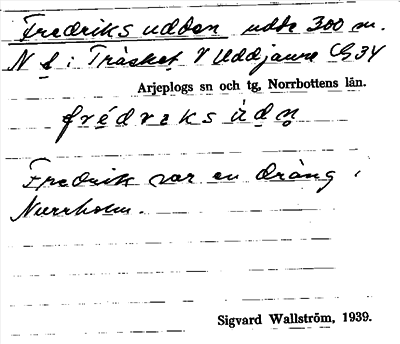 Fredriksudden udde 300 m.
N f i Träsket V Uddjaure Ch 34
Arjeplogs sn och tg, Norrbottens län.
frédreksùdn̥
Fredrik var en dräng i
Norrholm.
Sigvard Wallström, 1939.